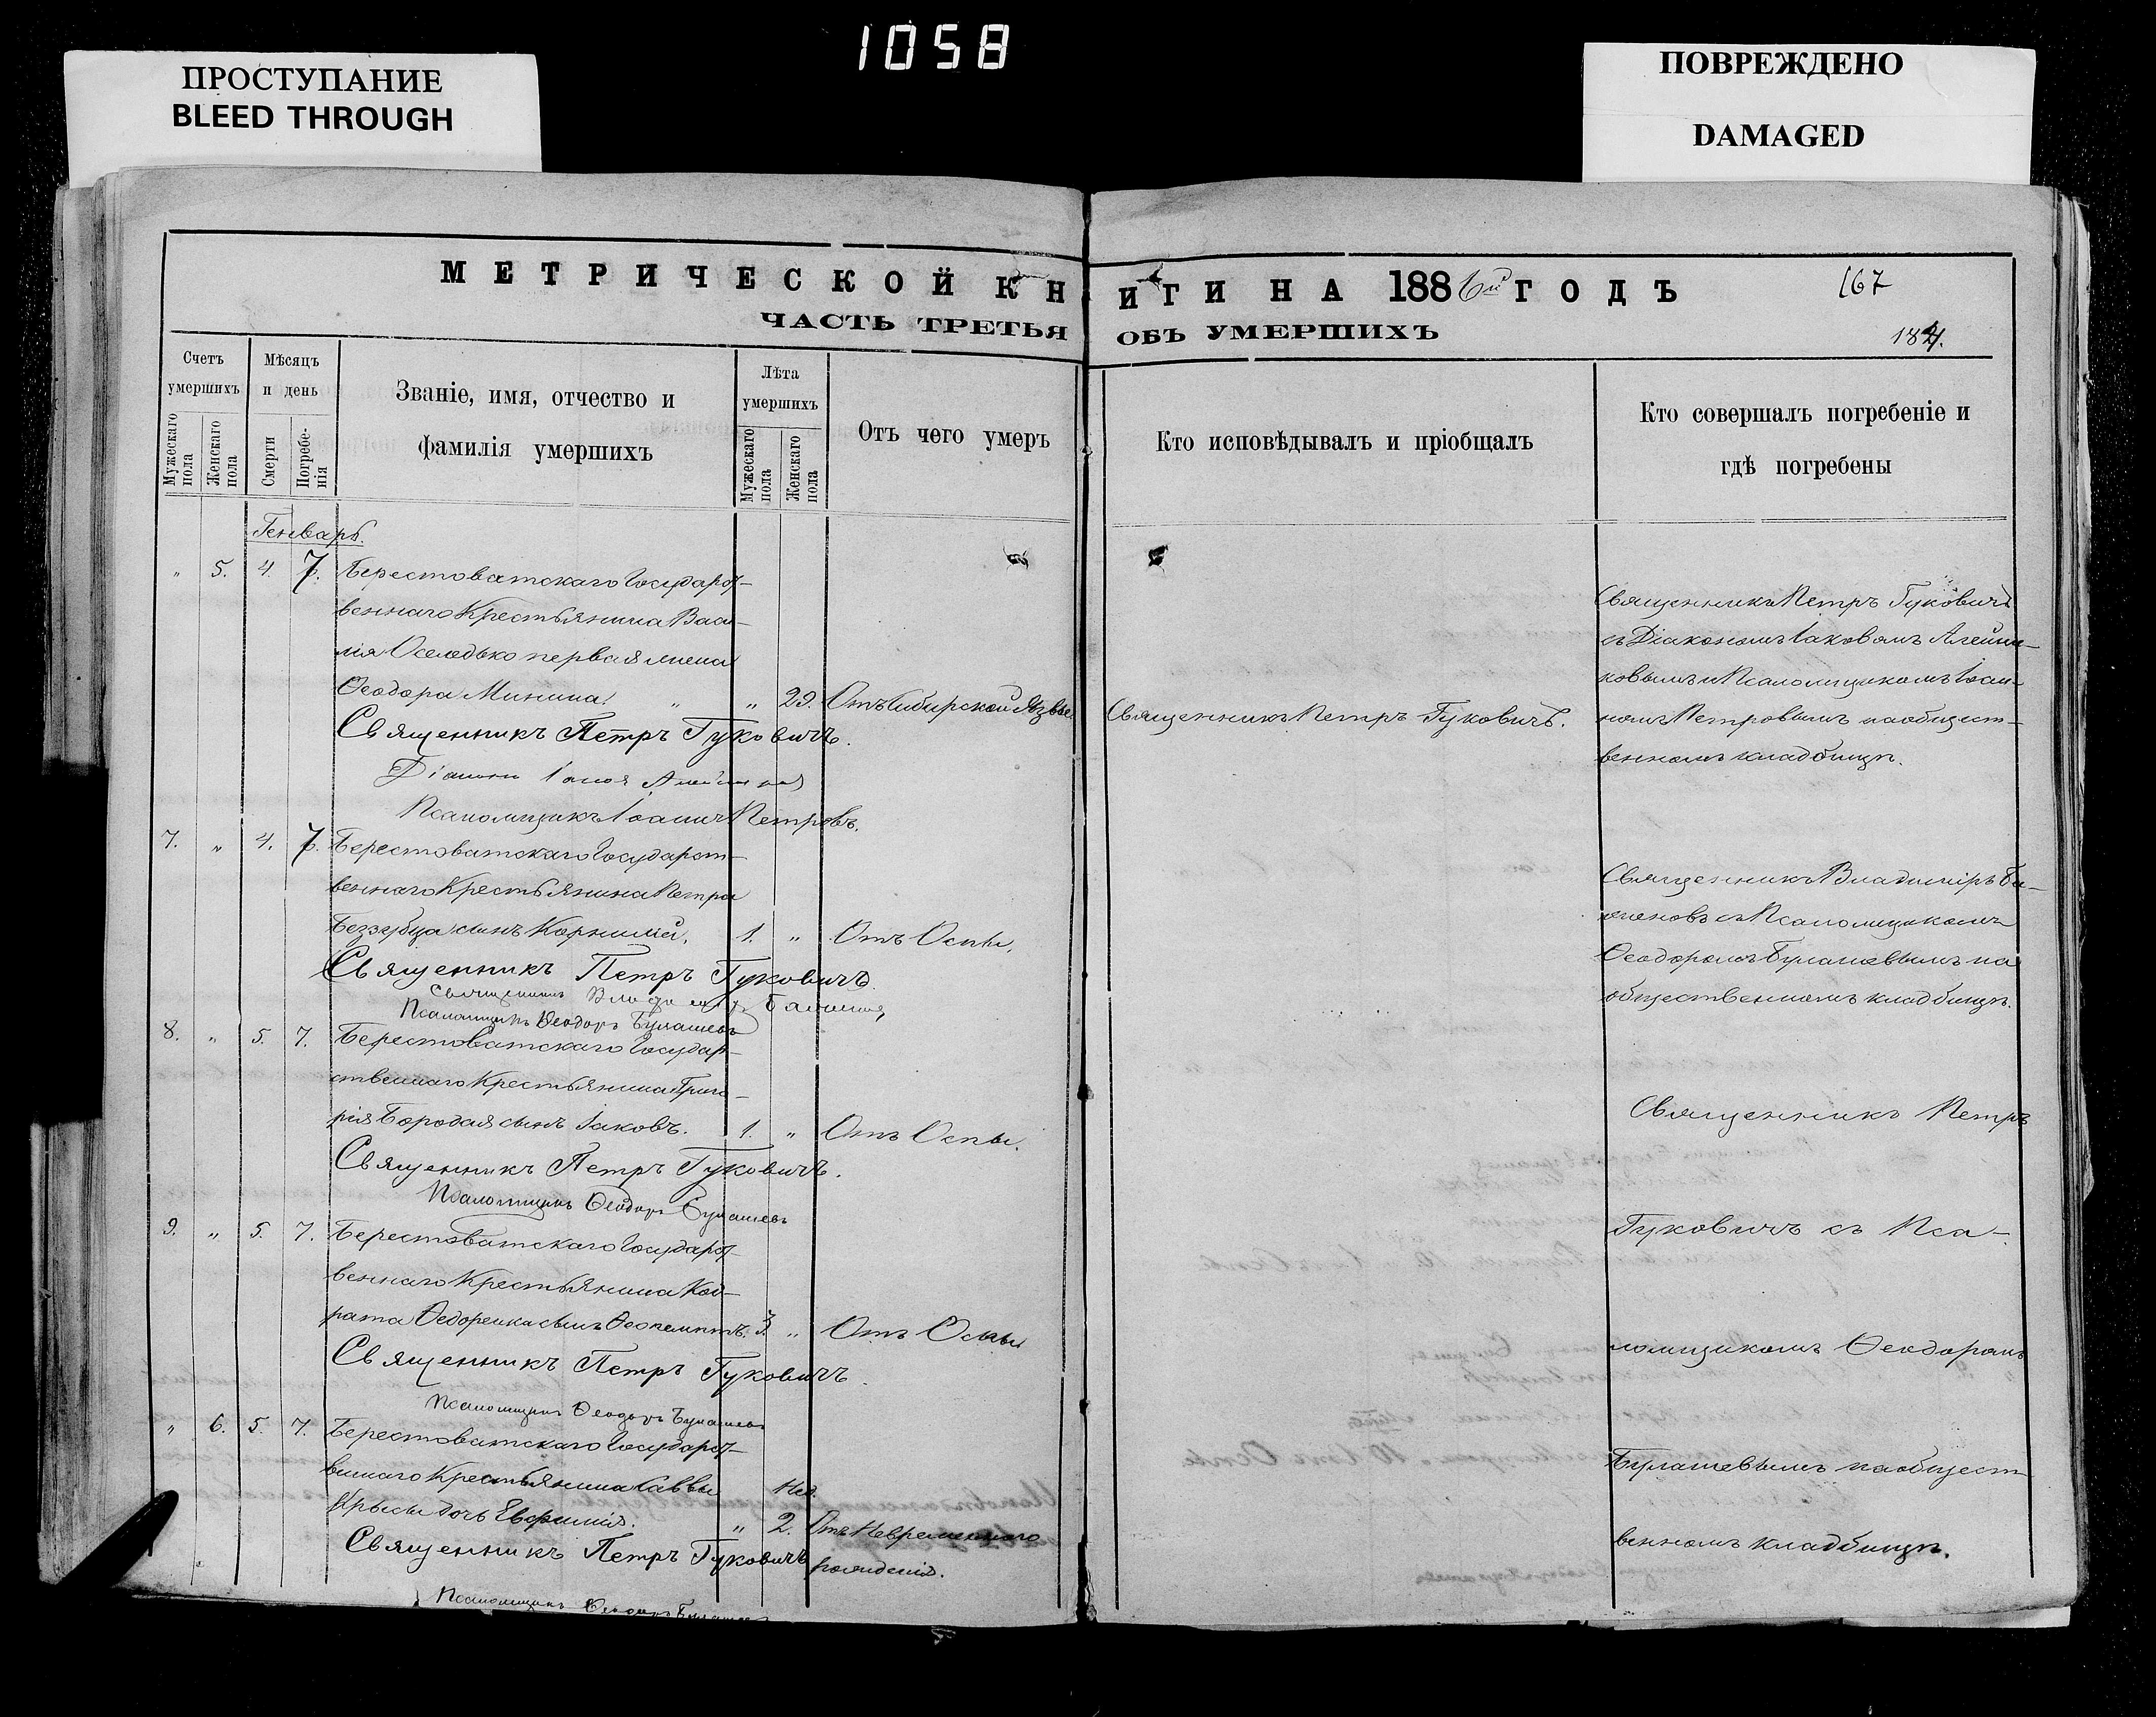 1058
ПРОСТУПАНИЕ
BLEED THROUGH
ПОВРЕЖДЕНО
DAMAGED
МЕТРИЧЕСКОЙ КНИГИ НА 1886й ГОДЪ
167
ЧАСТЬ ТРЕТЬЯ ОБЪ УМЕРШИХЪ
184.
Счетъ умершихъ
Мужескаго пола
Женскаго пола
Мѣсяцъ и день
Смерти
Погребенія
Званіе, имя, отчество и
фамилія умершихъ
Лѣта умершихъ
Мужескаго пола
Женскаго пола
Отъ чего умеръ
Кто исповѣдывалъ и пріобщалъ
Кто совершалъ погребеніе и
гдѣ погребены
Генварь.
" 5. 4. 7. Берестоватскаго Государст-
веннаго Крестьянина Васи-
лія Оселедько первая жена
Ѳеодора Минина. " " 29. Отъ Сибирской Язвы.
Священникъ Петръ Гуковичъ.
Священникъ Петръ Гуковичъ.
Псаломщикъ Іоаннъ Петровъ.
Священникъ Петръ Гуковичъ
съ Діакономъ Іаковомъ Алейни-
ковымъ и Псаломщикомъ Іоан-
номъ Петровымъ на общест-
венномъ кладбищѣ.
7. " 4. 7. Берестоватскаго Государст-
веннаго Крестьянина Петра
Беззубца сынъ Корнилій. 1. " Отъ Оспы.
Священникъ Петръ Гуковичъ.
Священникъ Владиміръ
Псаломщикъ Ѳеодоръ Булашевъ
Священникъ Владиміръ
съ Псаломщикомъ
Ѳеодоромъ Булашевымъ на
общественномъ кладбищѣ.
8. " 5. 7. Берестоватскаго Государ-
ственнаго Крестьянина Григо-
рія Бородая сынъ Іаковъ. 1. " Отъ Оспы.
Священникъ Петръ Гуковичъ.
Псаломщикъ Ѳеодоръ Булашевъ
9. " 5. 7. Берестоватскаго Государст-
веннаго Крестьянина Код-
рата Ѳедоренка сынъ Ѳеопемптъ. 3. " Отъ Оспы
Священникъ Петръ Гуковичъ.
Псаломщикъ Ѳеодоръ Булашевъ
" 6. 5. 7. Берестоватскаго Государст-
веннаго Крестьянина Саввы
Нед.
Крысы дочь Евфимія. " 2. Отъ Невременнаго
рожденія.
Священникъ Петръ Гуковичъ
Псаломщикъ Ѳеодоръ Булашевъ
Священникъ Петръ
Гуковичъ съ Пса-
ломщикомъ Ѳеодоромъ
Булашевымъ на общест-
венномъ кладбищѣ.